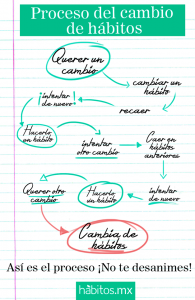 Proceso del cambio
de hábitos
Querer un
cambio
cambiar un
hábito
¡intentar
de nuevo!
recaer
Hacerlo
un hábito
intentar
otro cambio
Caer en
hábitos
anteriores
Querer otro
cambio
Hacerlo
un hábito
intentar
de nuevo
Cambia de
hábitos
Así es el proceso ¡No te desanimes!
hàbitos.mx